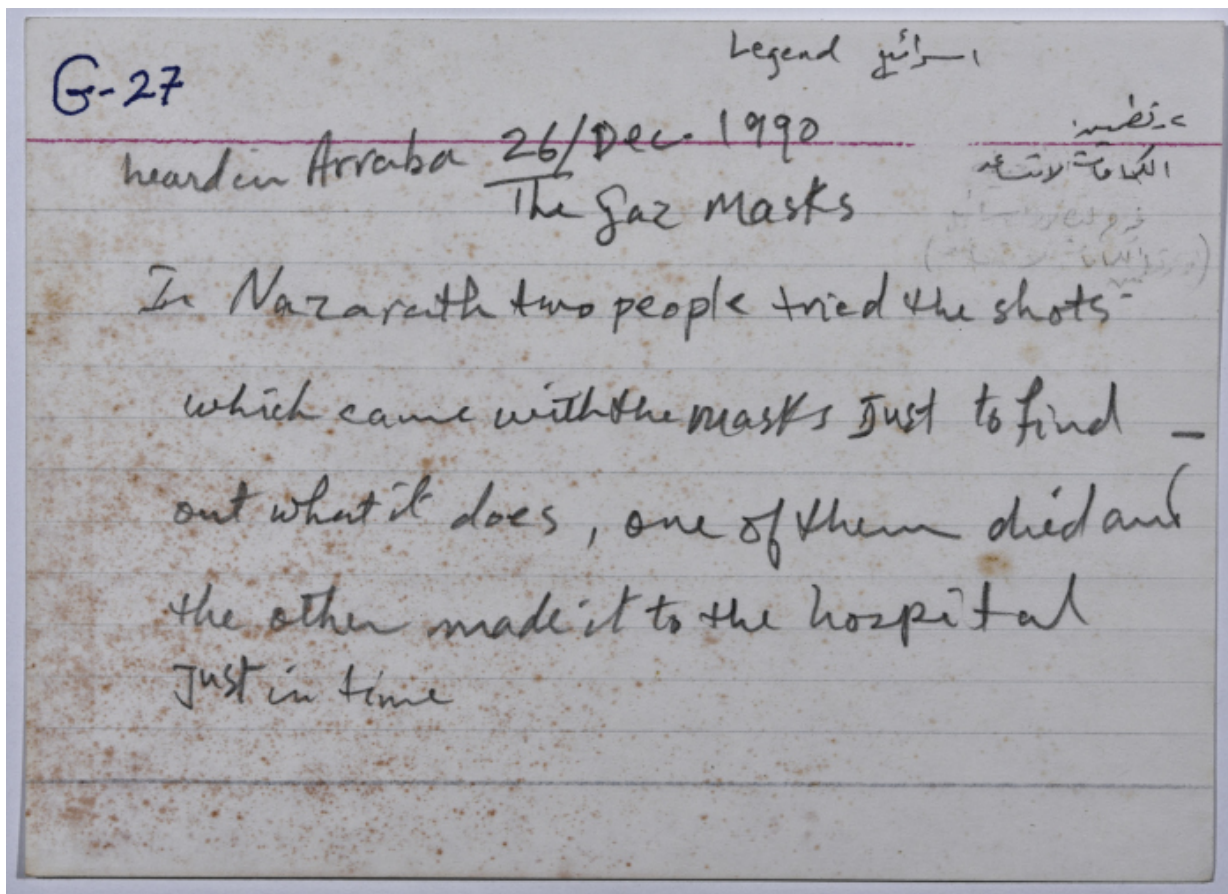 Legend اسرائيل
G-27
heard in Arraba 26/Dec. 1990
The gaz masks
In Nazarath two people tried the shots
which came with the masks Just to find
out what it does, one of them died and
the other made it to the hospital
Just in time